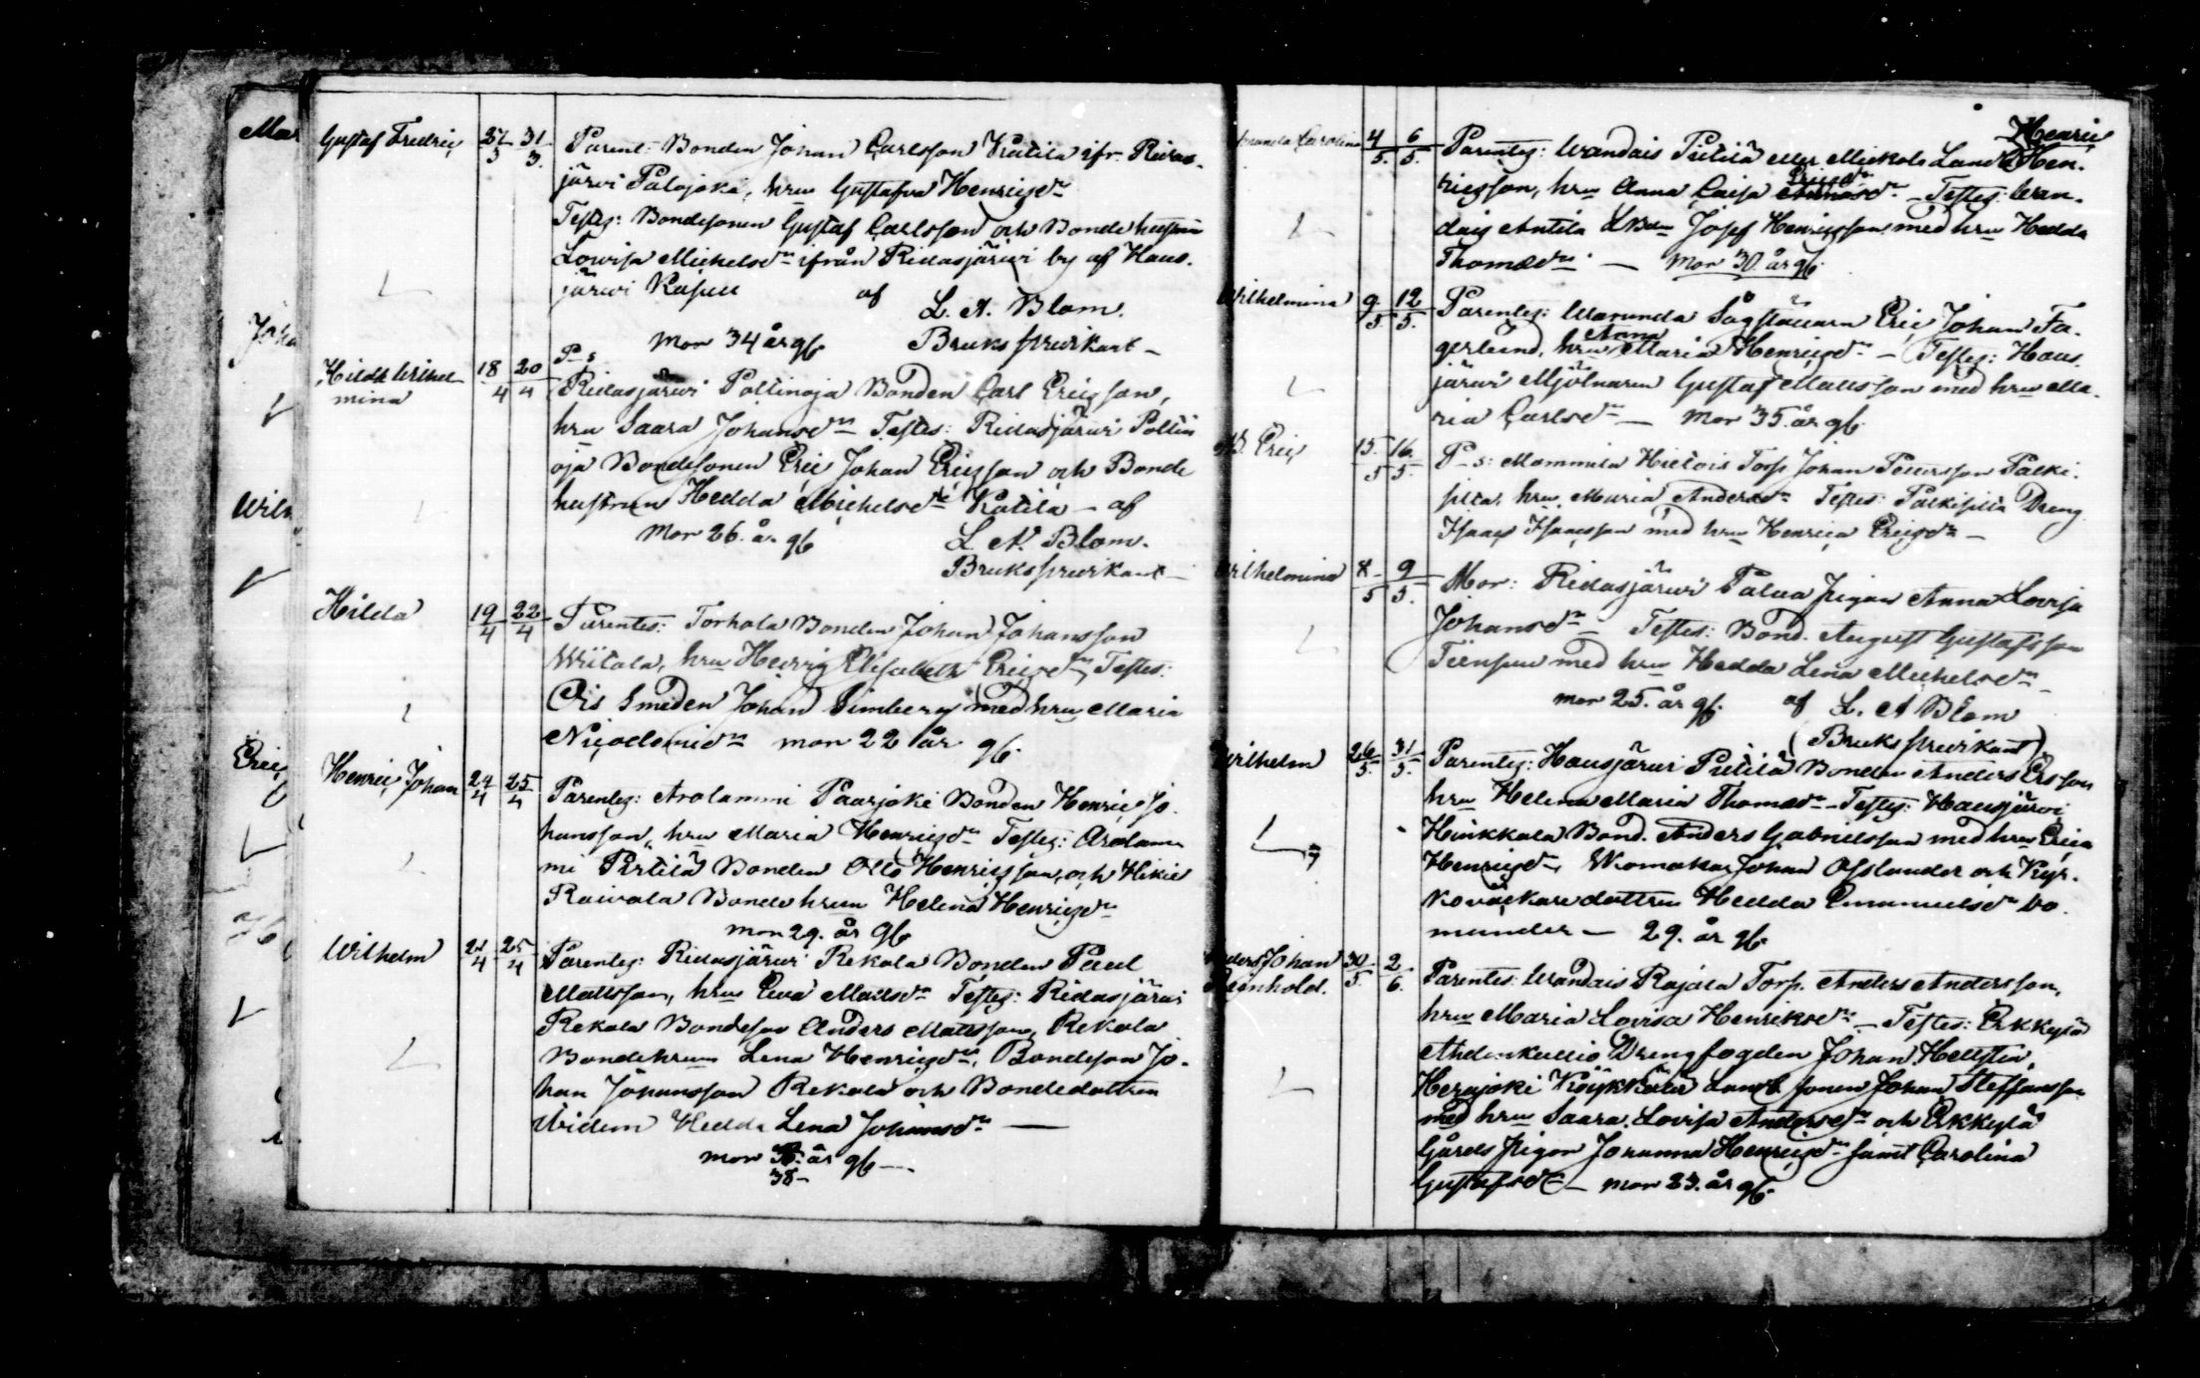 Gustaf Fredric 27/3 31/3. Parent: Bonden Johan Carlsson Kåtila ifr. Ridas-
järvi Palojoki, hru Gustafva Henricsdr
Testes: Bondesonen Gustaf Carlsson och Bonde hustrun
Lovisa Michelsdr ifrån Ridasjärvi by af Haus-
järvi af
L. A. Blom.
Mor 34 år gb. Brukspredikant -
Hilda Wilhel-
mina 18/4 20/4 P-s
Ridasjärvi Pollinoja Bonden Carl Ericsson,
hru Saara Johansdr Testes: Ridasjärvi Pollin
oja Bondesonen Eric Johan Ericsson och Bonde
hustrun Hedda Michelsdr Kåtila - af
Mor 26. å. gb L. A. Blom.
Brukspredikant -
Hilda 19/4 22/4 Parentes: Torhola Bonden Johan Johansson
Wiitala, hru Hedvig Elisabeth Ericsdr, Testes:
Ois Smeden Johan Limberg med hru Maria
Nicodemidr mor 22 år gb.
Henric Johan 24/4 25/4 Parentes: Arolammi Paarjoki Bonden Henric Jo-
hansson, hru Maria Henricsdr Testes: Arolam-
mi Pertilä Bonden Otto Henricsson, och Hikiä
Raivala Bonde hrun Helena Henricsdr
mor 29. år gb
Wilhelm 21/4 25/4 Parentes: Ridasjärvi Rekola Bonden Paul
Mattsson, hru Eva Mattsdr Testes: Ridasjärvi
Rekola Bondeson Anders Mattsson, Rekola
Bondehrun Lena Henricsdr, Bondeson Jo-
han Johansson Rekola och Bondedottren
Hedda Lena Johansdr —
mor år gb —.
38 -
Amanda Carolina 4/5. 6/5. Parentes: Wandais Pietilä eller Mickols Landb Henric
Hen-
ricsson, hru Anna Caisa Ericsdr - Testes: Wan-
dais Antila Ldbdn Josef Henricsson med hru Hedda
Thomædr. — Mor 30. år gb.
Wilhelmina 9/5. 12/5. Parentes: Eric Johan Fa-
gerlund, hru Anna Maria Henricsdr - Testes: Haus-
järvi Mjölnaren Gustaf Mattsson med hru Ma-
ria Carlsdr — Mor 35. år gb.
Eric 15./5 16./5. P-s: Mommila Hietois Torp. Johan Petersson Palki-
silta, hru Maria Andersdr Testes: Palkisilta Dreng
Isaac Isacsson med hru Henrica Ericsdr -
Wilhelmina 8/5 9/5. Mor: Ridasjärvi Palua pigan Anna Lovisa
Johansdr - Testes: Bond. August Gustafsson
med hru Hedda Lena Michelsdr -
mor 25. år gb. af L. A Blom
(Brukspredikant)
Wilhelm 26/5. 31/5. Parentes: Hausjärvi Pietilä Bonden Anders Ersson
hru Helena Maria Thomædr - Testes: Hausjärvi
Hinkkala Bond. Anders Gabrielsson med hru Erica
Henricsdr, Skomakar Johan Asslander och Kyr-
kovaktaredottren Hedda Emanuelsdr Wo-
munder - 29. år gb.
Anders Johan
Reinhold. 30/5. 2/6. Parentes: Wandais Rajala Torp. Anders Andersson,
hru Maria Lovisa Henriksdr - Testes: Erkkylä
Ahdenkallio Drengfogden Johan Hellsten,
Herajoki Landb. sonen Johan Steffansson
med hru Saara Lovisa Andersdr och Erkkylä
Gårds pigor Johanna Henricsdr samt Carolina
Gustafsdr - mor 23. år gb.